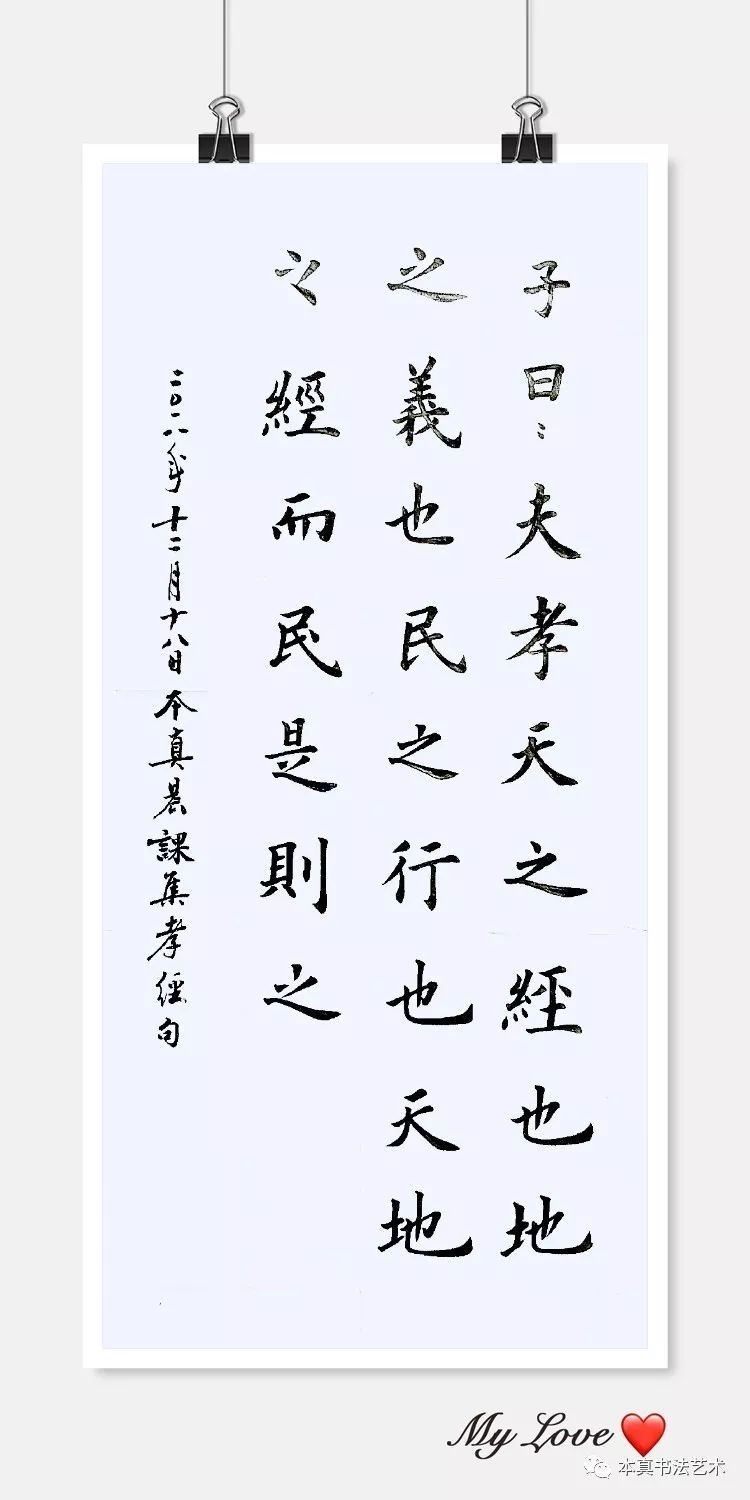 子曰：夫孝天之經也地
之義也民之行也天地
之經而民是則之
二〇一八年十二月十八日本真晨課集孝經句
My Love
本真书法艺术